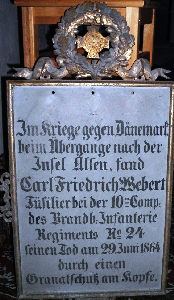 Im Kriege gegen Dänemark
beim Übergange nach der
Insel Alsen, fand
Carl Friedrich Webert
Füsilier bei der 10ten Comp.
des Brandb. Infanterie
Regiments No 24
seinen Tod am 29 Juni 1864
durch einen
Granatschuß am Kopfe.